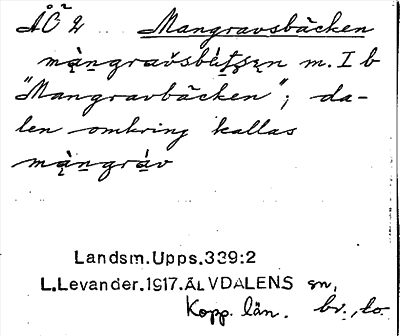 ÅČ 2 Mangravsbäcken
mą̀ṇgravsbä́tʂəṇ m. I b
"Mangravbäcken"; da-
len omkring kallas
mą̀ṇgráv
Landsm.Upps.339:2
L.Levander.1917.ÄLVDALENS sn,
Kopp. län. br., to.